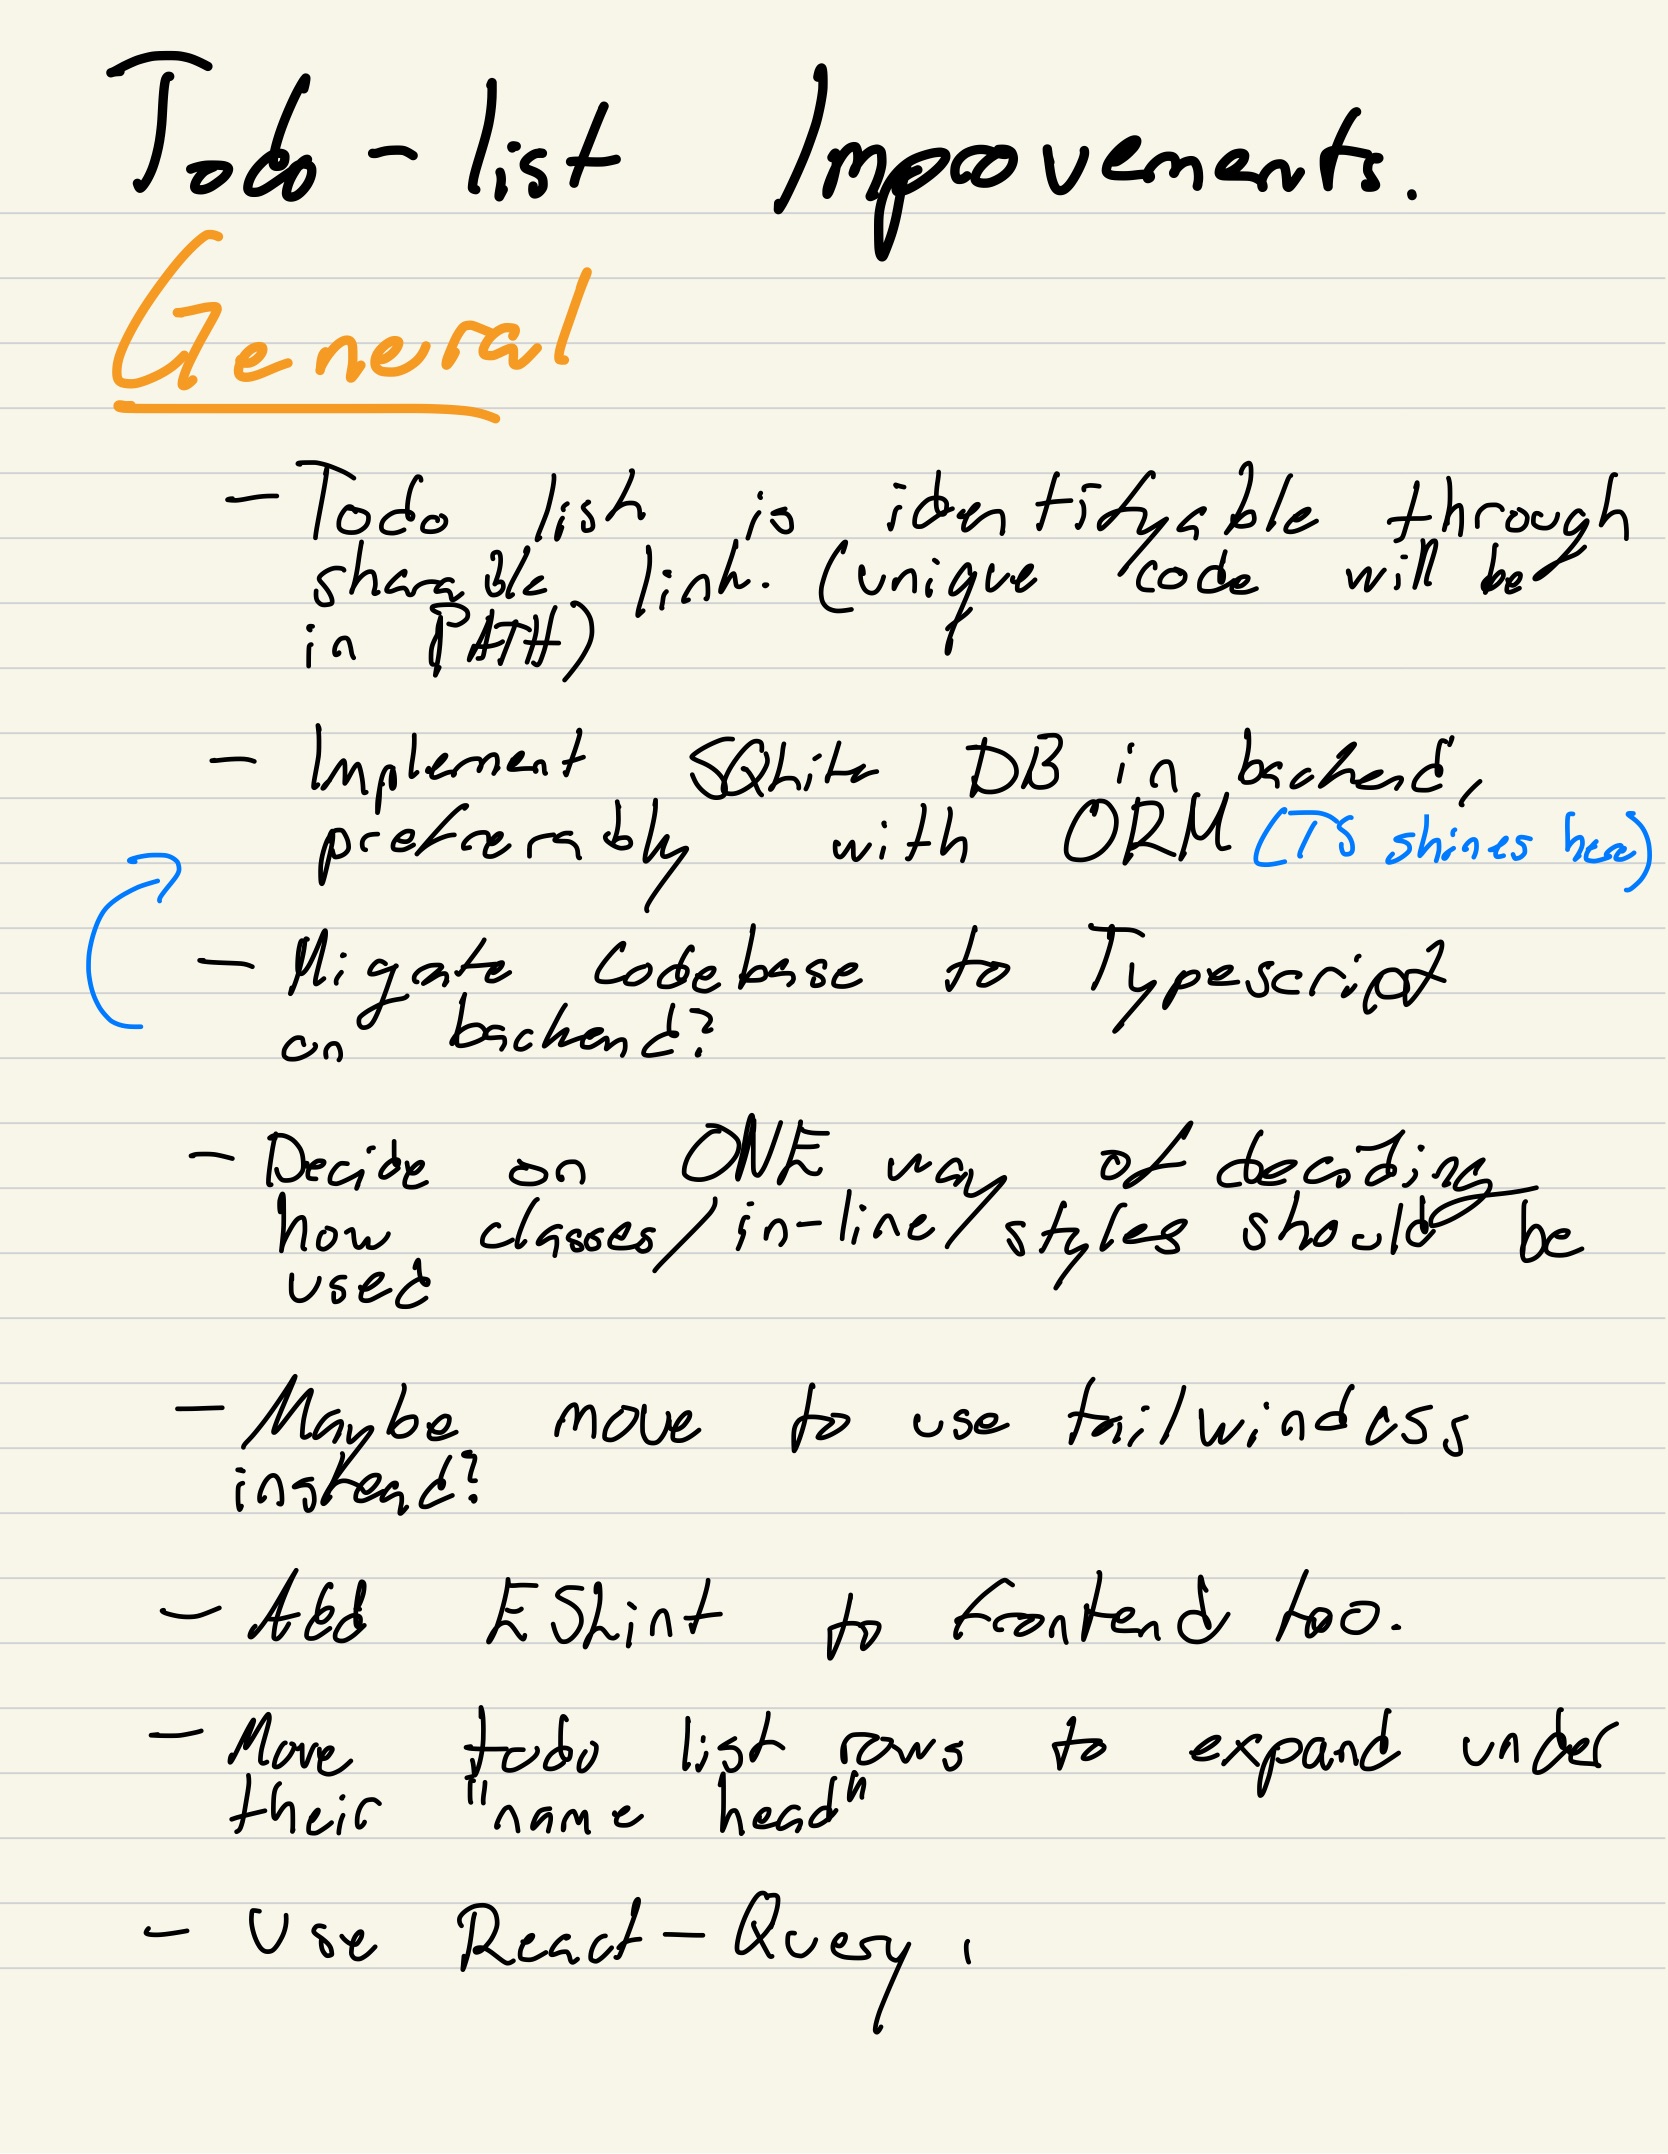 Todo - list Improvements.
General
- Todo list is identifyable through
sharable link. (unique code will be
in PATH)
- Implement SQLite DB in backend,
preferably with ORM (TS shines here)
- Migrate codebase to Typescript
on backend?
- Decide on ONE way of deciding
how classes/in-line/styles should be
used
- Maybe move to use tailwindcss
instead?
- Add ESLint to frontend too.
- Move todo list rows to expand under
their "name head"
- Use React-Query,